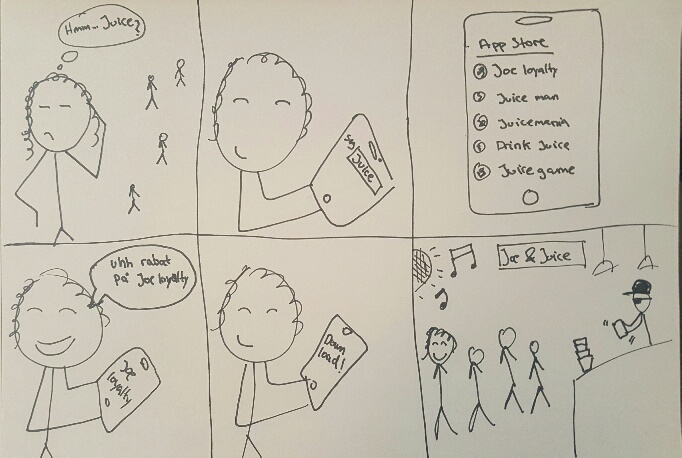 Hmm... Juice?
Søg
Juice
App Store
Joe loyalty
Juice man
Juicemania
Drink Juice
Juice game
uhh rabat
på Joe loyalty
Joe
loyalty
Down
load!
Joe & Juice